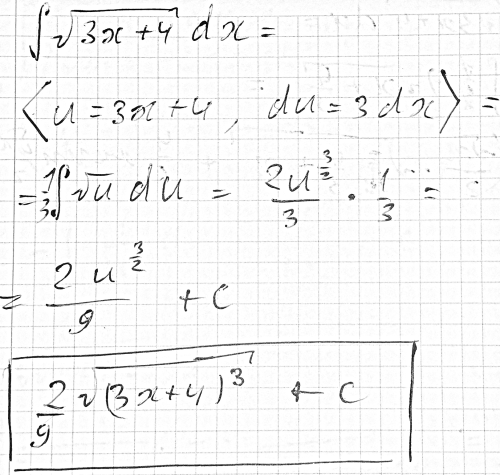 ∫√(3x+4) dx =
⟨u = 3x+4, du = 3dx⟩ =
= 1/3 ∫√u du = 2u^(3/2)/3 · 1/3 =
= 2u^(3/2)/9 + C
2/9 √((3x+4)^3) + C